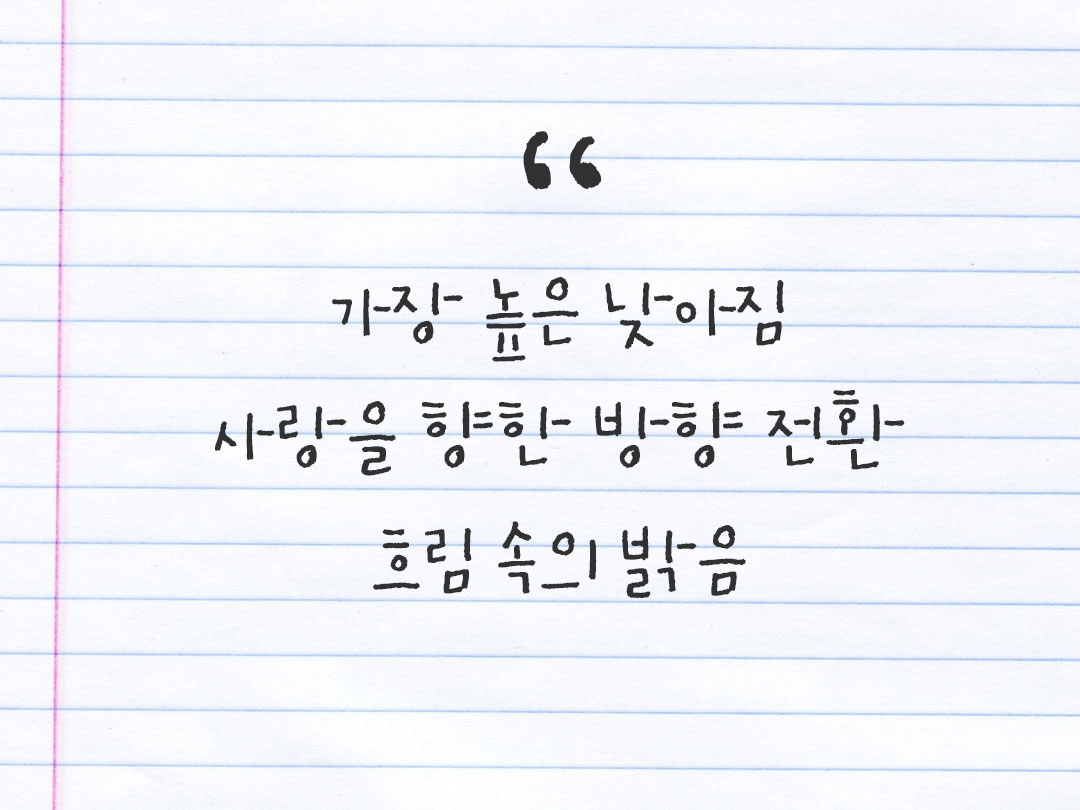 “
가장 높은 낮아짐
사랑을 향한 방향 전환
흐림 속의 밝음